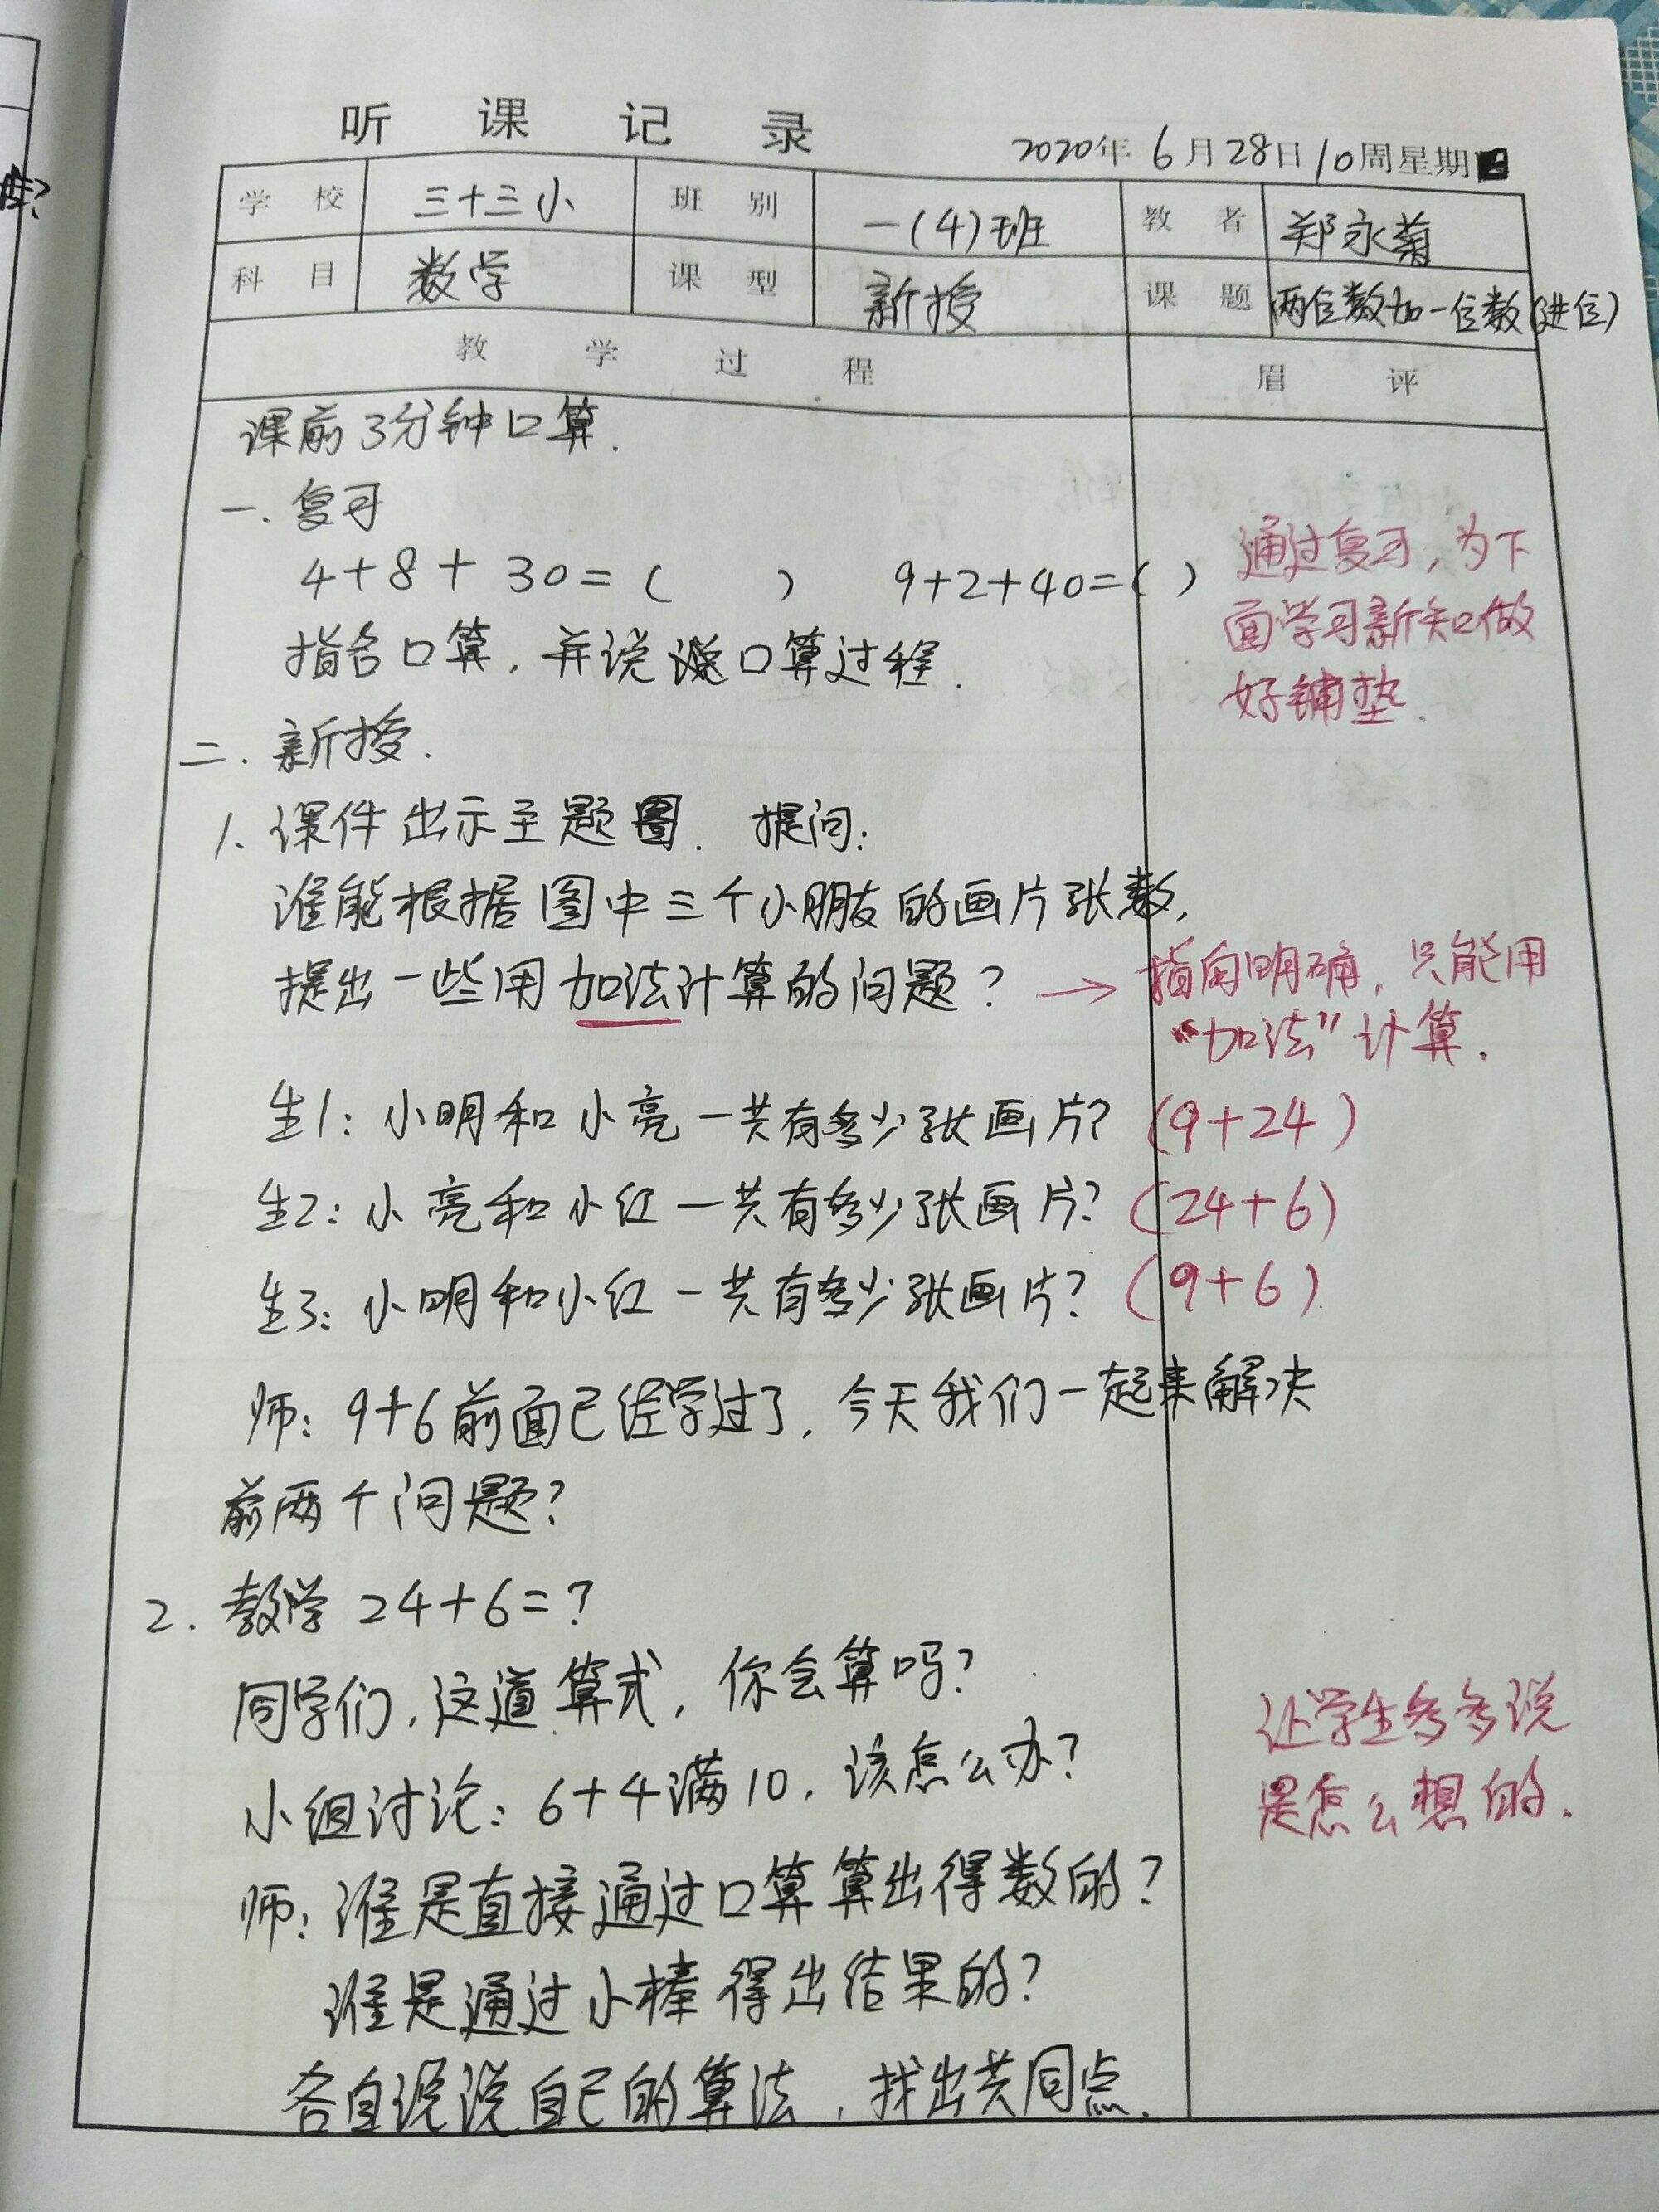 听 课 记 录
2020年 6月28日10周星期日
学校 三十三小 班别 一(4)班 教者 郑永菊
科目 数学 课型 新授 课题 两位数加一位数(进位)
教 学 过 程 眉 评
课前3分钟口算.
一. 复习
4+8+30=( ) 9+2+40=( )
指名口算, 并说说口算过程.
通过复习, 为下
面学习新知做
好铺垫.
二. 新授.
1. 课件出示主题图. 提问:
谁能根据图中三个小朋友的画片张数,
提出一些用加法计算的问题? → 指向明确, 只能用
“加法”计算.
生1: 小明和小亮一共有多少张画片? (9+24)
生2: 小亮和小红一共有多少张画片? (24+6)
生3: 小明和小红一共有多少张画片? (9+6)
师: 9+6前面已经学过了, 今天我们一起来解决
前两个问题?
2. 教学 24+6=?
同学们, 这道算式, 你会算吗?
小组讨论: 6+4满10, 该怎么办?
让学生多多说
是怎么想的.
师: 谁是直接通过口算算出得数的?
谁是通过小棒得出结果的?
各自说说自己的算法, 找出共同点.